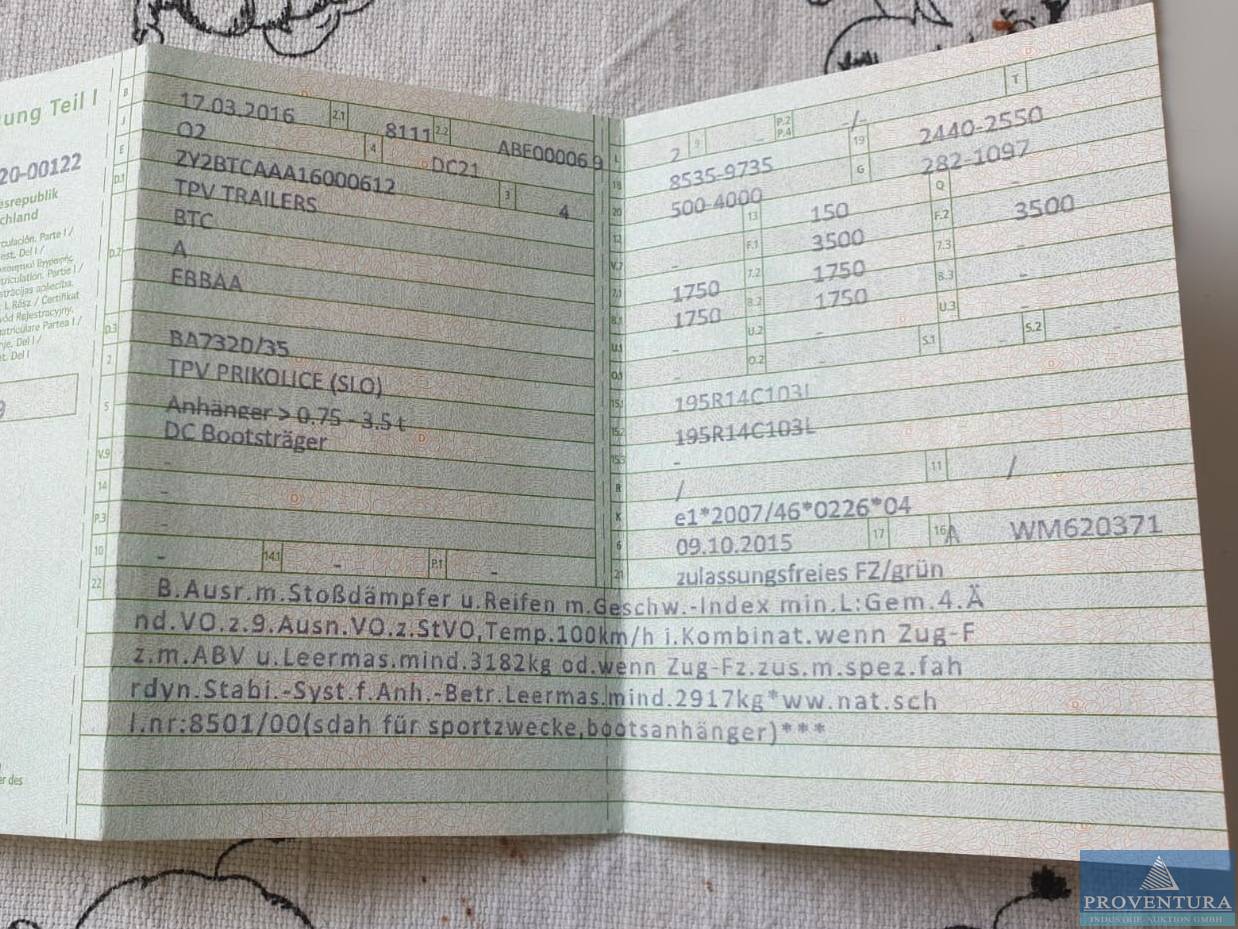 ung Teil I
20-00122
esrepublik
chland
B 17.03.2016 2.1 8111 2.2 ABE000069
J O2 4 DC21
E ZY2BTCAAA16000612 3 4
D.1 TPV TRAILERS
D.2 BTC
A
EBBAA
D.3 BA7320/35
2 TPV PRIKOLICE (SLO)
5 Anhänger > 0.75 - 3.5 t
DC Bootsträger
V.9 -
14 -
P.3 -
10 - 14.1 - P.1 -
L 2 9 - P.2 P.4 -/- T
18 8535-9735 19 2440-2550
20 500-4000 G 282-1097
12 - 13 150 Q -
V.7 - F.1 3500 F.2 3500
7.1 1750 7.2 1750 7.3 -
8.1 1750 8.2 1750 8.3 -
U.1 - U.2 - U.3 -
O.1 - O.2 - S.1 - S.2 -
15.1 195R14C103L
15.2 195R14C103L
15.3 -
R / 11 /
K e1*2007/46*0226*04
6 09.10.2015 17 A 16 WM620371
21 zulassungsfreies FZ/grün
22 B.Ausr.m.Stoßdämpfer u.Reifen m.Geschw.-Index min.L:Gem.4.Ä
nd.VO.z.9.Ausn.VO.z.StVO,Temp.100km/h i.Kombinat.wenn Zug-F
z.m.ABV u.Leermas.mind.3182kg od.wenn Zug-Fz.zus.m.spez.fah
rdyn.Stabi.-Syst.f.Anh.-Betr.Leermas.mind.2917kg*ww.nat.sch
l.nr:8501/00(sdah für sportzwecke,bootsanhänger)***
PROVENTURA
INDUSTRIE-AUKTION GMBH